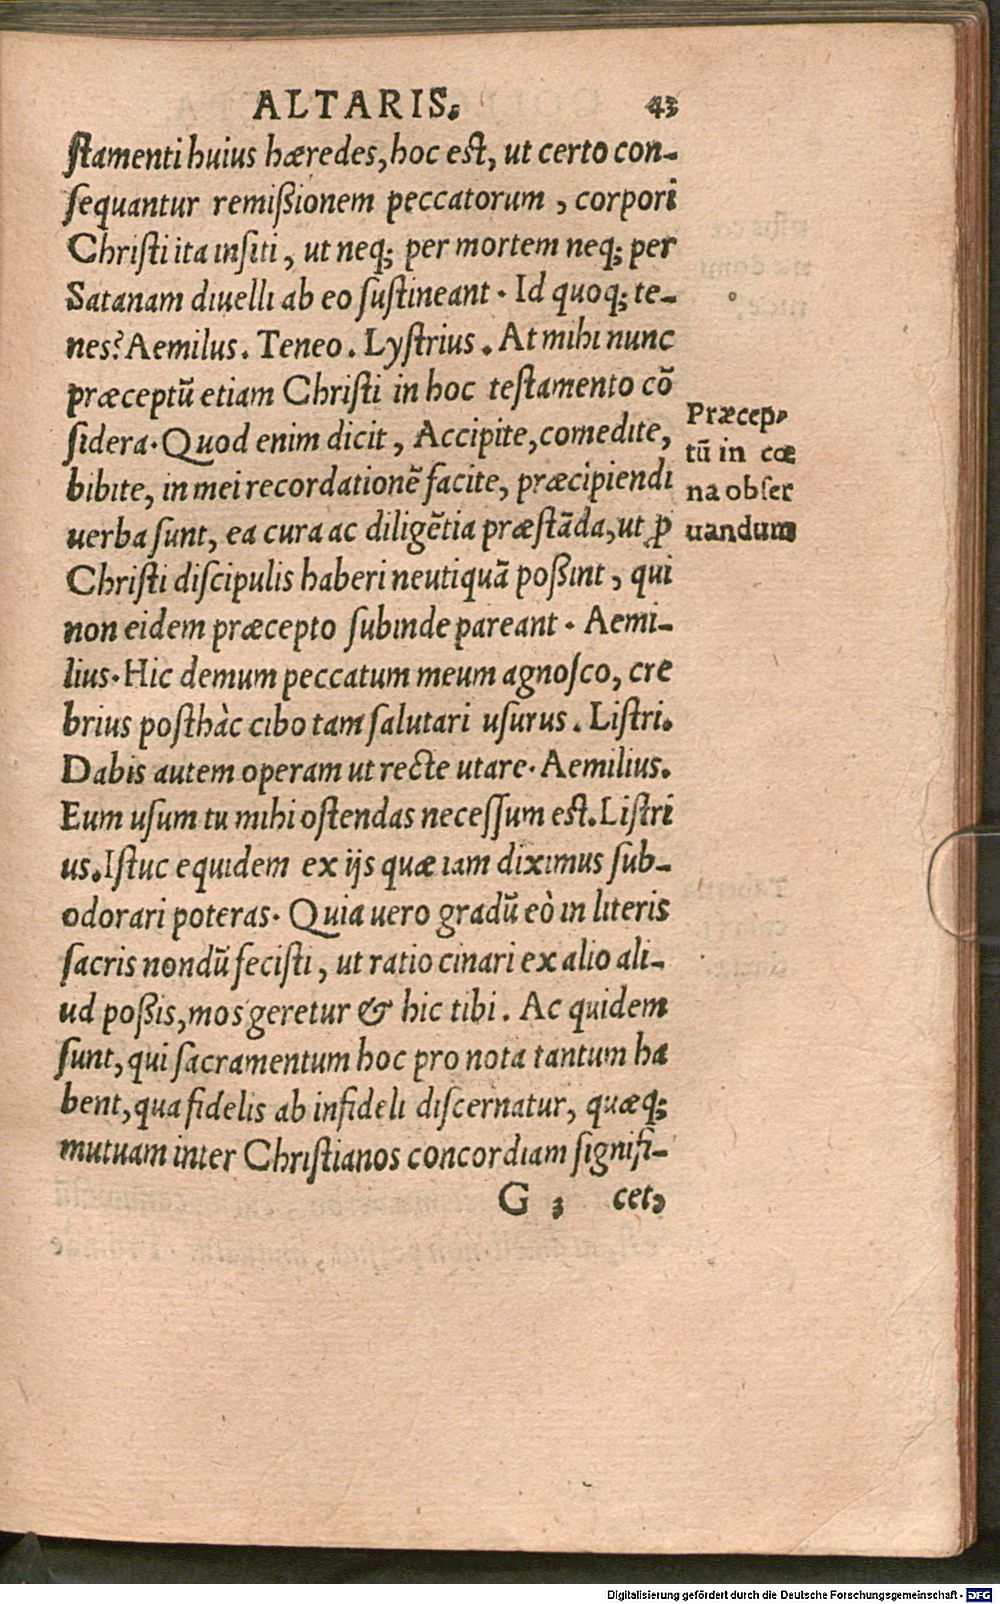 ALTARIS. 43
ſtamenti huius hæredes, hoc eſt, ut certo con-
ſequantur remiſsionem peccatorum, corpori
Chriſti ita inſiti, ut neq; per mortem neq; per
Satanam diuelli ab eo ſuſtineant. Id quoq; te-
nes? Aemilus. Teneo. Lyſtrius. At mihi nunc
præceptũ etiam Chriſti in hoc teſtamento cõ
ſidera. Quod enim dicit, Accipite, comedite,
bibite, in mei recordationẽ facite, præcipiendi
uerba ſunt, ea cura ac diligẽtia præſtãda, ut ꝓ
Chriſti diſcipulis haberi neutiquã poßint, qui
non eidem præcepto ſubinde pareant. Aemi-
lius. Hic demum peccatum meum agnoſco, cre
brius poſthàc cibo tam ſalutari uſurus. Liſtri.
Dabis autem operam ut recte utare. Aemilius.
Eum uſum tu mihi oſtendas neceſſum eſt. Liſtri
us. Iſtuc equidem ex ijs quæ iam diximus ſub-
odorari poteras. Quia uero gradũ eò in literis
ſacris nondũ feciſti, ut ratiocinari ex alio ali-
ud poßis, mos geretur & hic tibi. Ac quidem
ſunt, qui ſacramentum hoc pro nota tantum ha
bent, qua fidelis ab infideli diſcernatur, quæq;
mutuam inter Chriſtianos concordiam ſignifi-
G 3 cet,
Præcep-
tũ in cœ
na obſer
uandum
Digitalisierung gefördert durch die Deutsche Forschungsgemeinschaft - DFG